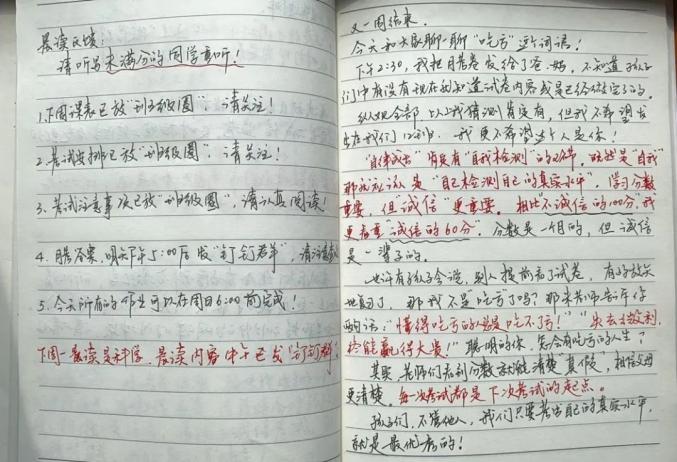 晨读反馈！
请听写未满分的同学重听！
1.下周课表已放"班级圈"，请关注！
2.考试安排已放"班级圈"，请关注！
3.考试注意事项已放"班级圈"，请认真阅读！
4.月考答案，明天下午5:00后发"钉钉群"，请注意
5.今天所有的作业可以在周日6:00前完成！
下周一晨读是科学，晨读内容中午已发"钉钉群"
又一周结束。
今天和大家聊一聊"吃亏"这个词语！
下午2:30，我把月考卷发给了爸、妈，不知道孩子
们中有没有现在就知道试卷内容或是已经做完了的。
纵观全部，以上我猜测肯定有，但我不希望发
生在我们12班，我更不希望这个人是你！
"自律成长"肯定有"自我检测"的环节，既然是"自我"
那就应该是"自己检测自己的真实水平"，学习分数
重要，但"诚信"更重要。相比不诚信的100分，我
更看重"诚信的60分"。分数是一时的，但诚信
是一辈子的。
也许有孩子会说，别人提前看了试卷，有的放矢
地复习了，那我不是吃亏了吗？那朱老师告诉你
两句话："懂得吃亏的人总是吃不了亏！""失去小数利，
终能赢得大奖！"聪明的你，怎会有吃亏的人生？
其实，老师们看到分数就能清楚"真假"，相信父母
更清楚。每一次考试都是下次考试的起点。
孩子们，不管他人，我们只要考出自己的真实水平，
就是最优秀的！